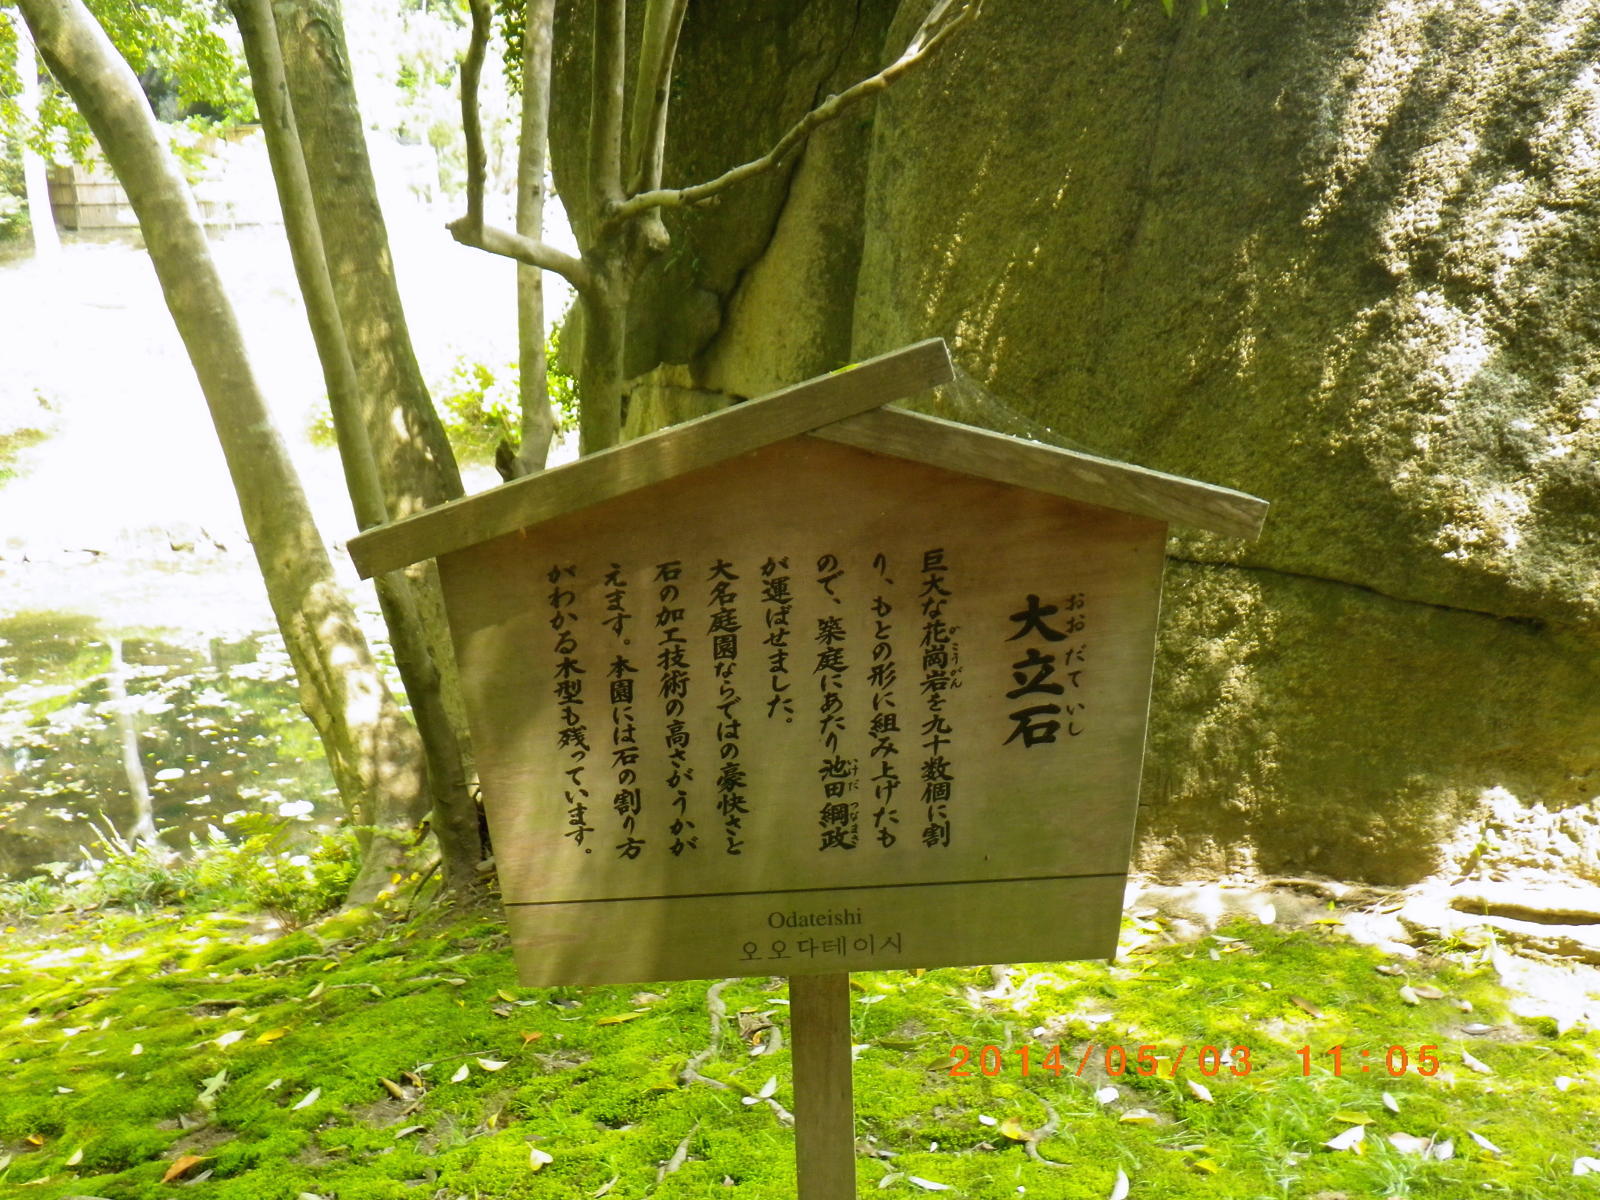 大立石
おおだていし
巨大な花崗岩を九十数個に割
かこうがん
り、もとの形に組み上げたも
ので、築庭にあたり池田綱政
いけだ つなまさ
が運ばせました。
大名庭園ならではの豪快さと
石の加工技術の高さがうかが
えます。本園には石の割り方
がわかる木型も残っています。
Odateishi
오오다테이시
2014/05/03 11:05